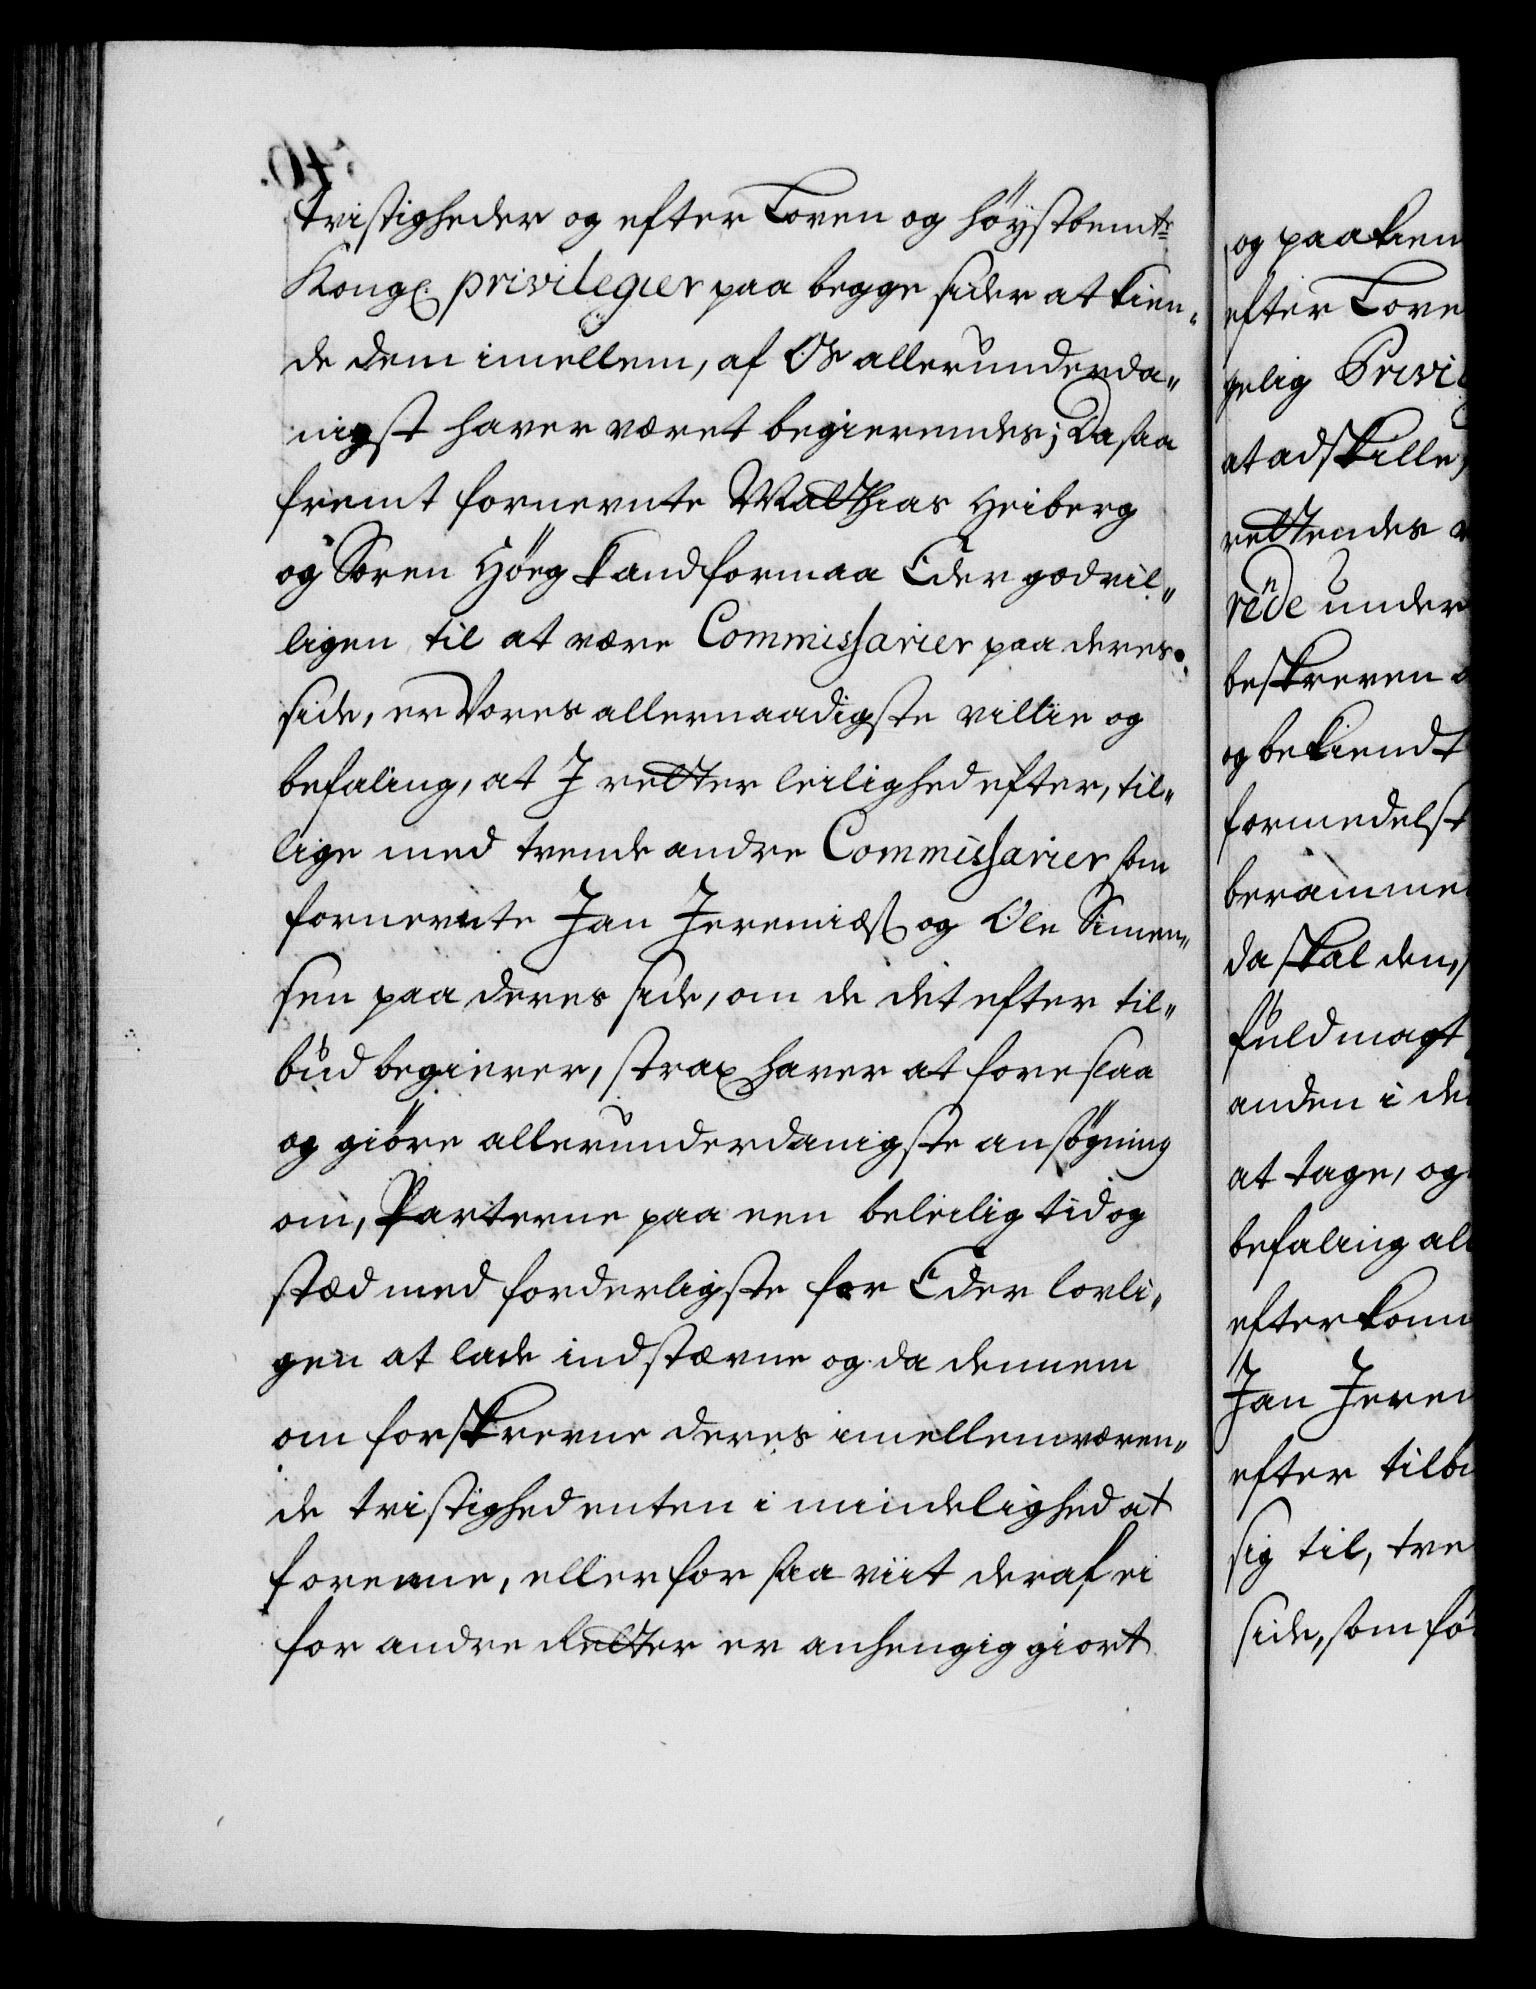 tvistigheder og efter Loven og høystbemte
Kongl. privilegier paa begge sider at kien„
de dem imellem, af Os allerunderda„
nigst haver været begierendes; Da saa
fremt fornevnte Matthias Heiberg
og Soren Höeg kand formaa Eder godvil„
ligen til at være Commissarier paa deres
side, er Vores allernaadigste villie og
befaling, at I retter leilighed efter, til„
lige med trende andre Commissarier som
fornevnte Jan Jeremiæs og Ole Simen„
sen paa deres side, om de det efter til„
bud begierer, strax haver at foreslaa
og giöre allerunderdanigste ansögning
om, Parterne paa een beleilig tid og
stæd med forderligste for Eder lovli„
gen at lade indstævne og da dennem
om forskrevne deres imellemværen„
de tvistighed enten i mindelighed at
foreene, eller for saa viit deraf ei
for andre Retter er anhengig giort
og paakien
efter Love
gelig Privi
at adskille,
rettendes
rende under
beskreven
og bekiendt
formedelst
beramme
da skal den,
fuldmagt
anden i de
at tage, og
befaling al
efterkom
Jan Jerem
efter tilbu
sig til, tre
side, som fö